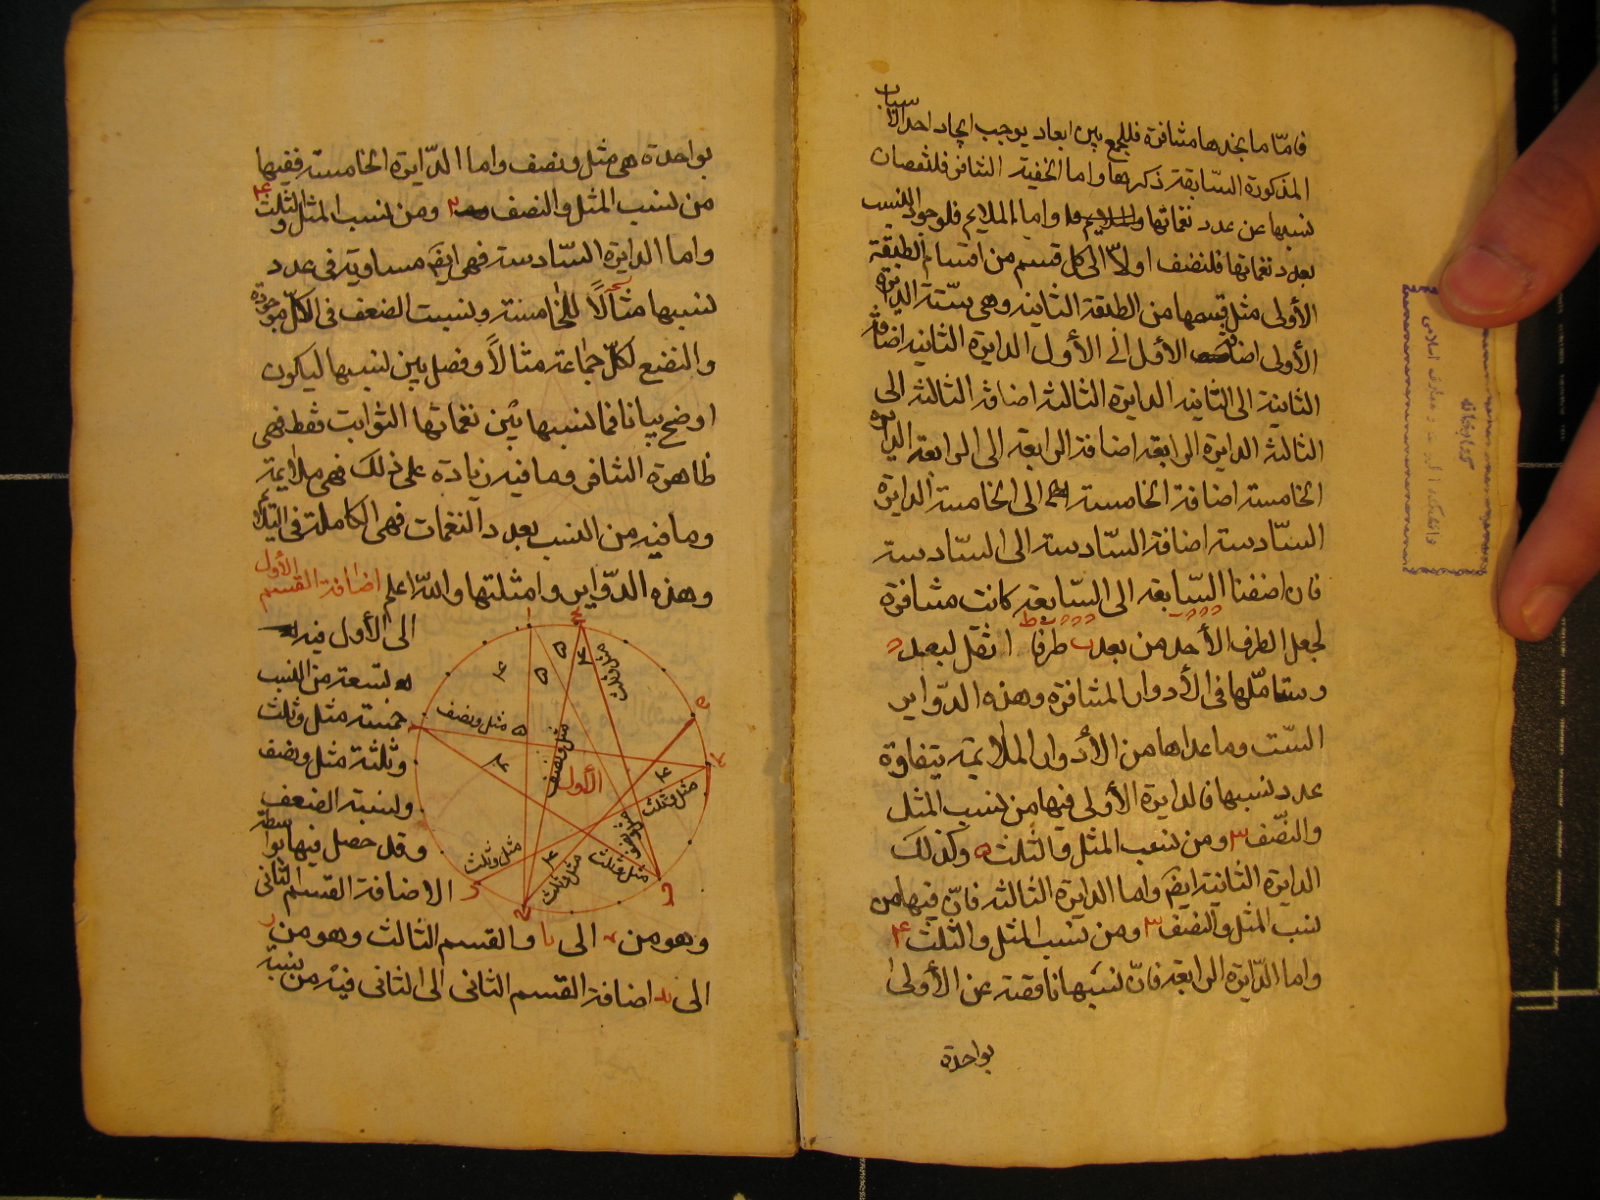 فامّا ما نجدها متنافرة فللجمع بين ابعاد يوجب ايجاد احد الاسباب
المذكورة السّابقة ذكرها واما الخفية التنافر فلنقصان
نسبها عن عدد نغماتها واما الملايم فلوجود النسب
بعدد نغماتها فلنضف اولاً الى كل قسم من اقسام الطبقة
الأولى مثل قسمها من الطبقة الثانية وهى ستّة الدايرة
الأولى اضافة الأول الى الأول الدايرة الثانية اضافة
الثانية الى الثانية الدايرة الثالثة اضافة الثالثة الى
الثالثة الدايرة الرابعة اضافة الرابعة الى الرابعة الدايرة
الخامسة اضافة الخامسة الى الخامسة الدايرة
السّادسة اضافة السّادسة الى السّادسة
فان اضفنا السّابعة الى السّابعة كانت متنافرة
لجعل الطرف الأحد من بعد ب طرفا اثقل لبعد
وستاملها فى الأدوار المتنافرة وهذه الدّواير
الستّ وما عداها من الأدوار الملايمة يتفاوة
عدد نسبها فالدايرة الأولى فيها من نسب المثل
والنّصف ٣ ومن نسب المثل والثلث ٥ وكذلك
الدايرة الثانية ايضً واما الدايرة الثالثة فانّ فيها من
نسب المثل والنصف ٣ ومن نسب المثل والثلث ۴
واما الدّايرة الرابعة فانّ نسبها ناقصة عن الأولى
بواحدة
بواحدة هى مثل ونصف واما الدّايرة الخامسة ففيها
من نسب المثل والنصف ٢ ومن نسب المثل والثلث ۴
واما الدايرة السّادسة فهى ايضً مساوية فى عدد
نسبها مثالاً للخامسة ونسبت الضعف فى الكلّ موجودة
ولنضع لكلّ جماعة مثالاً وفصل بين نسبها ليكون
اوضح بيانا فما نسبها بين نغماتها الثوابت فقط فهى
ظاهرة التنافر وما فيه زيادة على ذلك فهى ملايمة
وما فيه من النسب بعدد النغمات فهى الكاملة فى التلايم
وهذه الدّواير وامثلتها واللّه اعلم اضافة القسم الأول
الى الأول فيه
تسعة من النسب
خمسة مثل وثلث
وثلثة مثل ونصف
ونسبة الضعف
وقد حصل فيها بواسطة
الاضافة القسم الثانى
وهو من الى يا والقسم الثالث وهو من
الى يد اضافة القسم الثانى الى الثانى فيه من نسبة
مثل وثلث
مثل ونصف
مثل ونصف
الأول
مثل وثلث
مثل ونصف
مثل وثلث
مثل وثلث
مثل وثلث